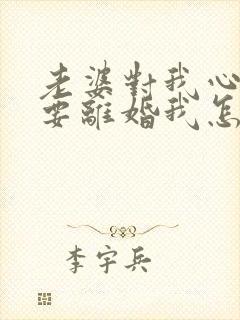 老婆對我心
要離婚我怎
李宇兵